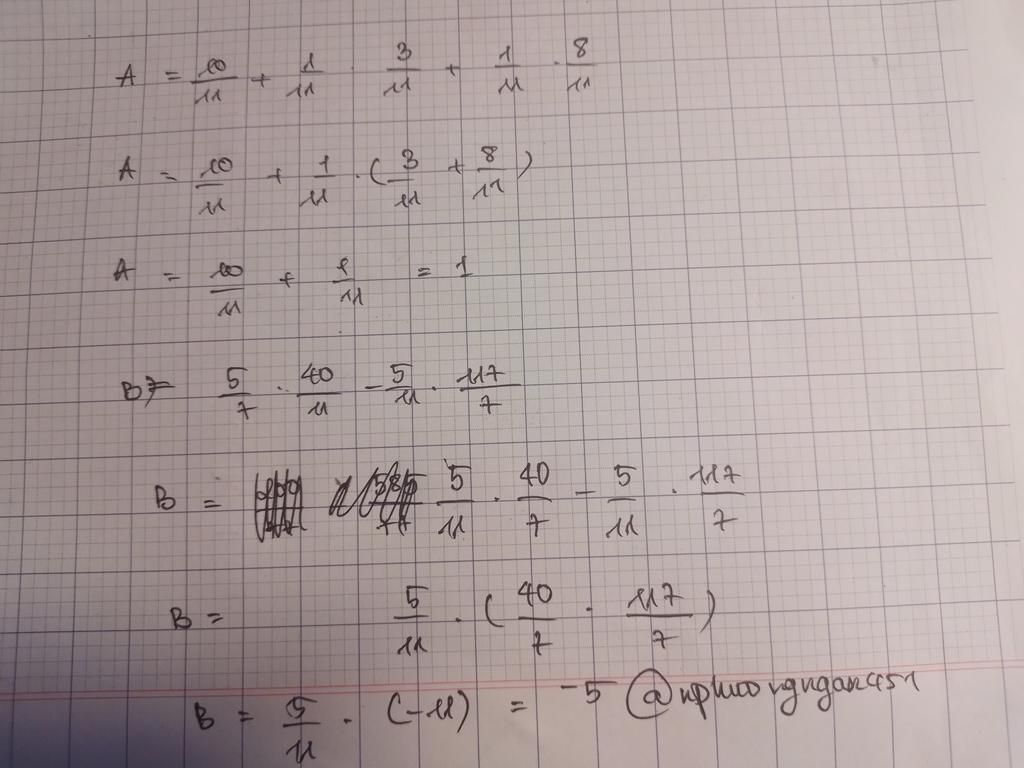 A = 10/11 + 1/11 · 3/11 + 1/11 · 8/11
A = 10/11 + 1/11 · (3/11 + 8/11)
A = 10/11 + 1/11 = 1
B = 5/7 · 40/11 - 5/11 · 117/7
B = 5/11 · 40/7 - 5/11 · 117/7
B = 5/11 · (40/7 · 117/7)
B = 5/11 · (-11) = -5